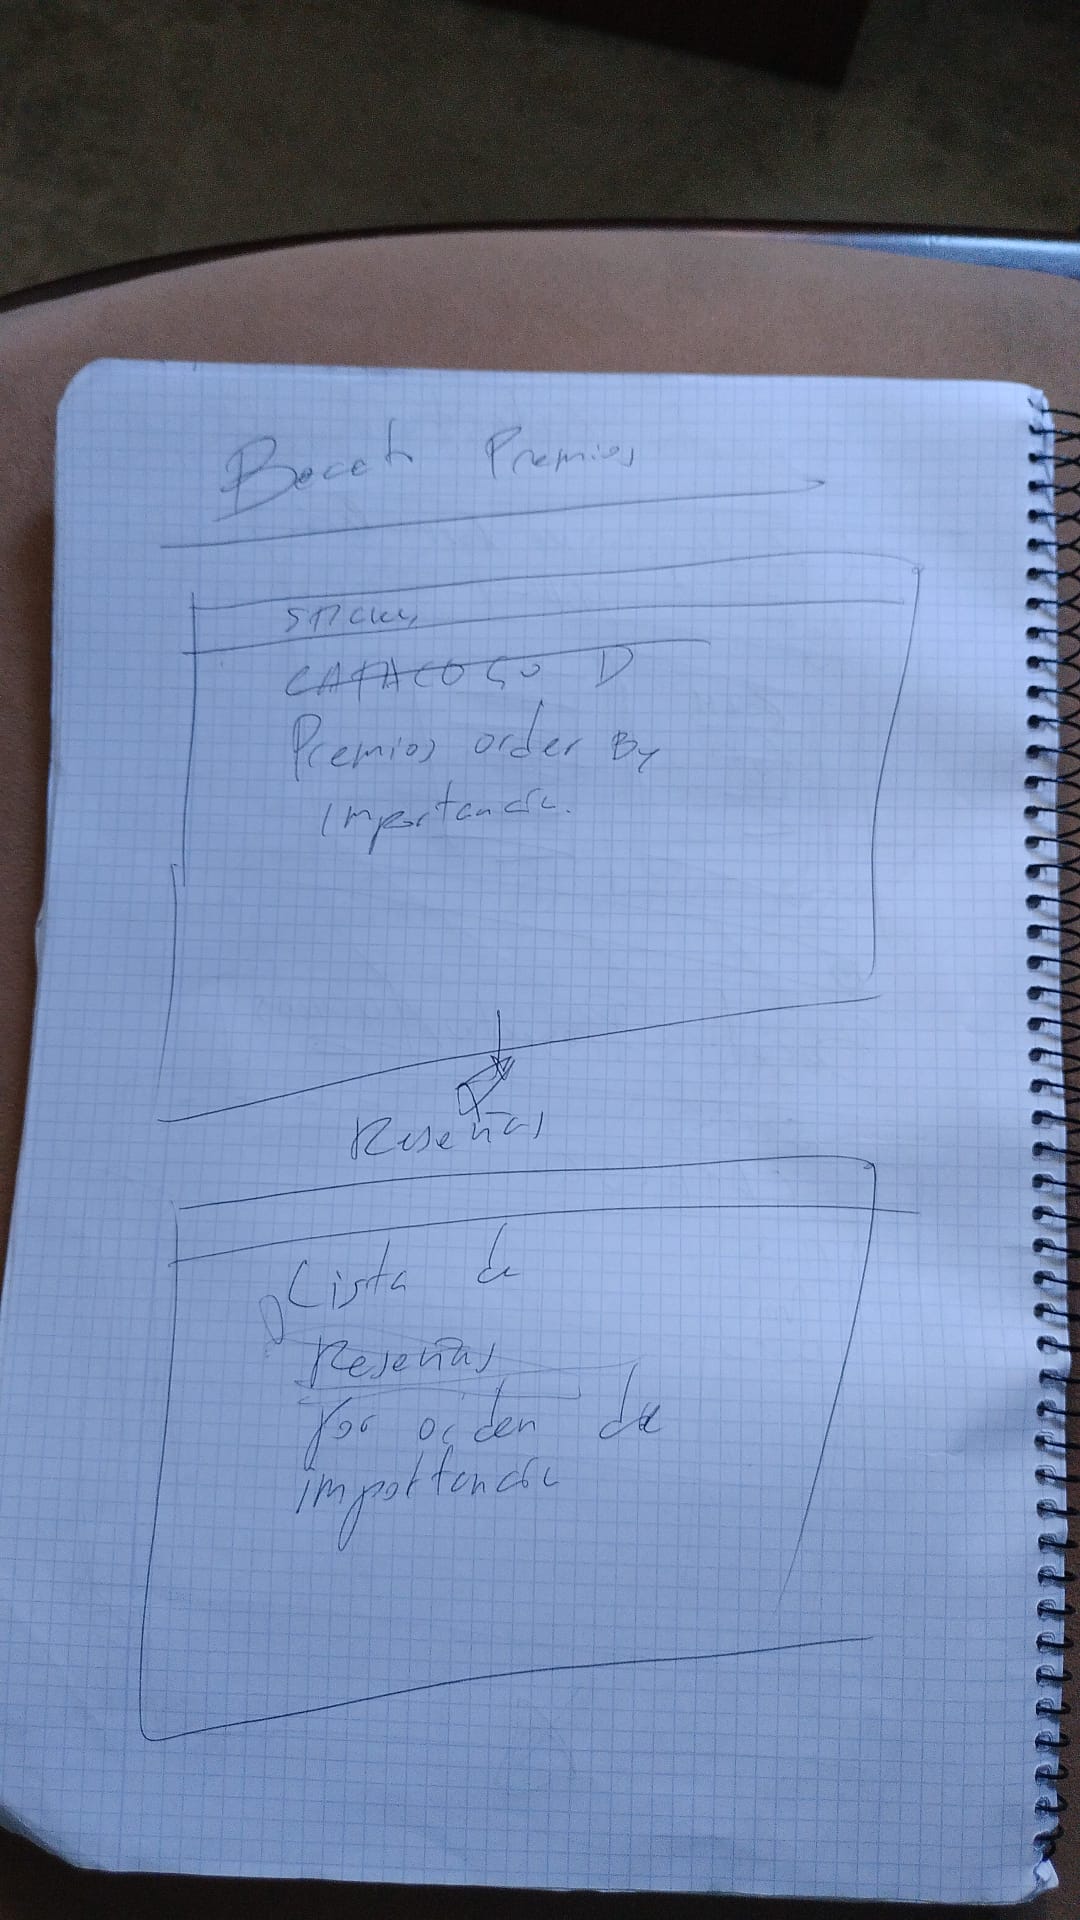 Boceto Premios
STICKY
CATALOGO D
Premios order By
importancia.
Reseñas
Lista de
Reseñas
por orden de
importancia